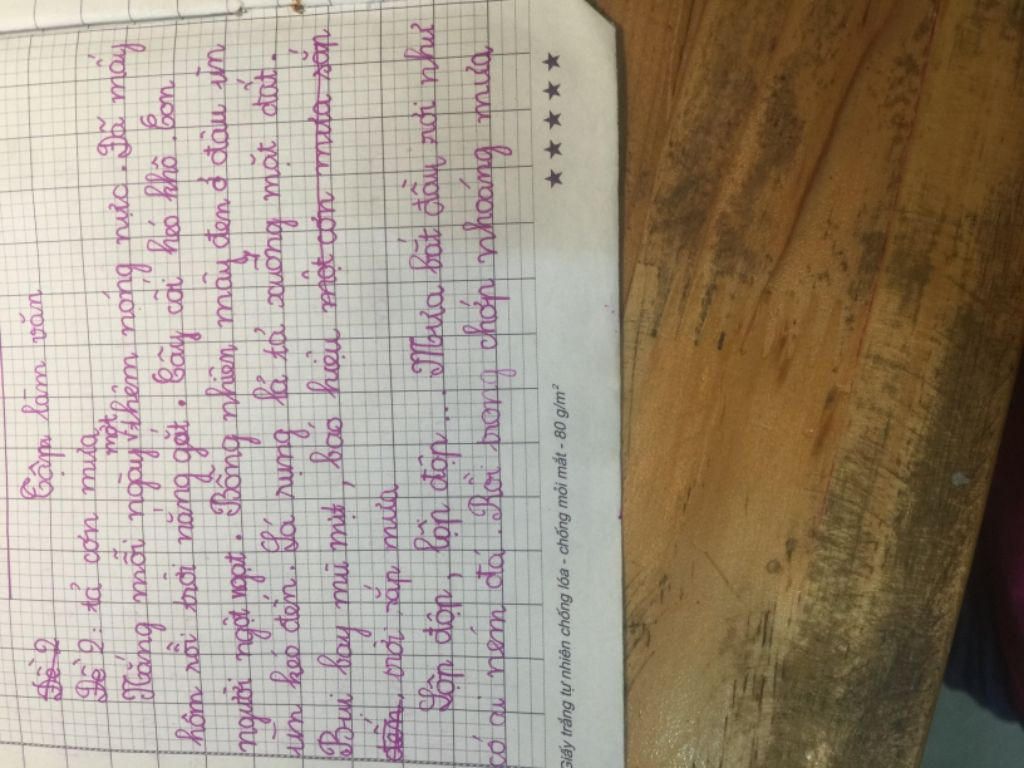 Tập làm văn
Đề 2
Đề 2: tả cơn mưa
Nắng mỗi ngày một thêm nóng nực. Đã mấy
hôm rồi trời nắng gắt. Cây cối héo khô. Con
người ngột ngạt. Bỗng nhiên, mây đen ở đâu ùn
ùn kéo đến. Lá rụng lả tả xuống mặt đất.
Bụi bay mù mịt, báo hiệu một cơn mưa sắp
đến. trời sắp mưa
Lộp độp, lộp độp... Mưa bắt đầu rơi như
có ai ném đá. Rồi trong chớp nhoáng mưa
Giấy trắng tự nhiên chống lóa - chống mỏi mắt - 80 g/m²